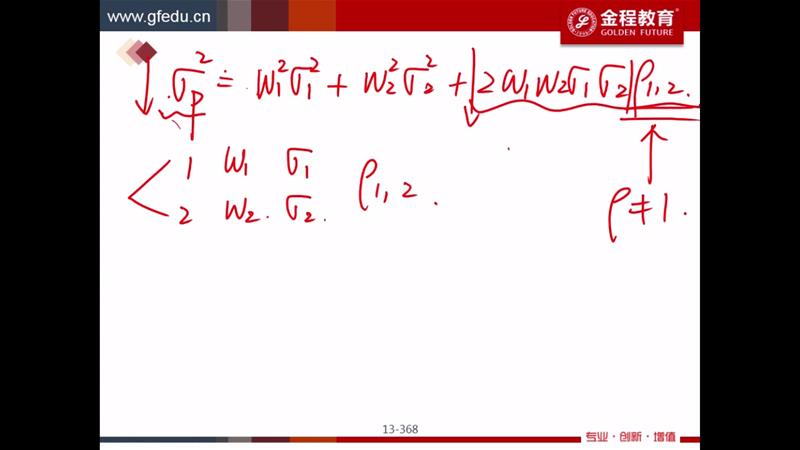 www.gfedu.cn
金程教育
GOLDEN FUTURE
↓ σ_p² = w₁²σ₁² + w₂²σ₂² + 2w₁w₂σ₁σ₂ρ₁,₂.
1 w₁ σ₁
2 w₂. σ₂. ρ₁,₂.
ρ≠1.
13-368
专业·创新·增值